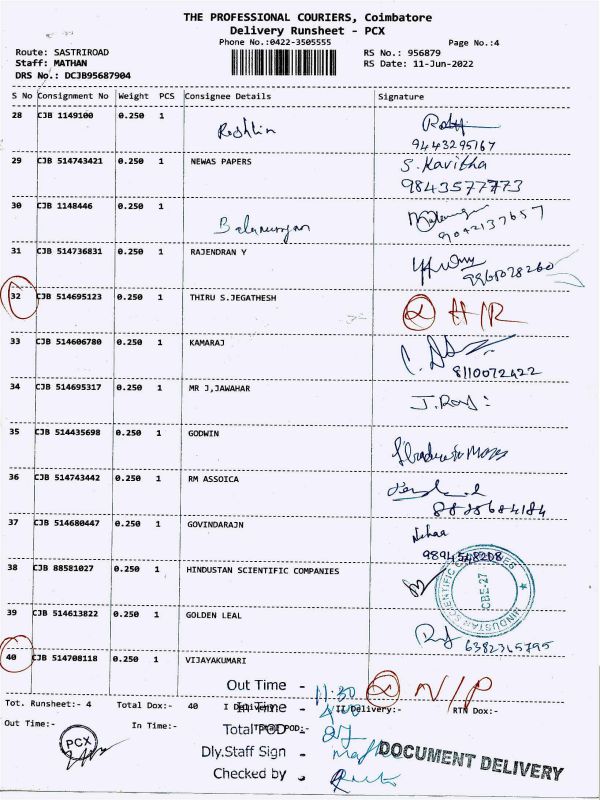 THE PROFESSIONAL COURIERS, Coimbatore
Delivery Runsheet - PCX
Phone No.:0422-3505555
Page No.:4
Route: SASTRIROAD
RS No.: 956879
Staff: MATHAN
RS Date: 11-Jun-2022
DRS No.: DCJB95687904
S No Consignment No Weight PCS Consignee Details Signature
28 CJB 1149100 0.250 1 Roshlin
9443295167
29 CJB 514743421 0.250 1 NEWAS PAPERS S. Kavitha
9843577773
30 CJB 1148446 0.250 1 Balamurugan
9042137657
31 CJB 514736831 0.250 1 RAJENDRAN Y
32 CJB 514695123 0.250 1 THIRU S.JEGATHESH H/R
33 CJB 514606780 0.250 1 KAMARAJ
8110072422
34 CJB 514695317 0.250 1 MR J,JAWAHAR
35 CJB 514435698 0.250 1 GODWIN
36 CJB 514743442 0.250 1 RM ASSOICA
37 CJB 514680447 0.250 1 GOVINDARAJN
9894548208
38 CJB 88581027 0.250 1 HINDUSTAN SCIENTIFIC COMPANIES
HINDUSTAN SCIENTIFIC
CBE-27
39 CJB 514613822 0.250 1 GOLDEN LEAL
6382315795
40 CJB 514708118 0.250 1 VIJAYAKUMARI
Out Time - 11.30 N/P
Tot. Runsheet:- 4 Total Dox:- 40 I Delivery:- II Delivery:- RTN Dox:-
In Time -
Out Time:- In Time:- Total POD:-
Total POD -
PCX
Dly.Staff Sign -
DOCUMENT DELIVERY
Checked by -